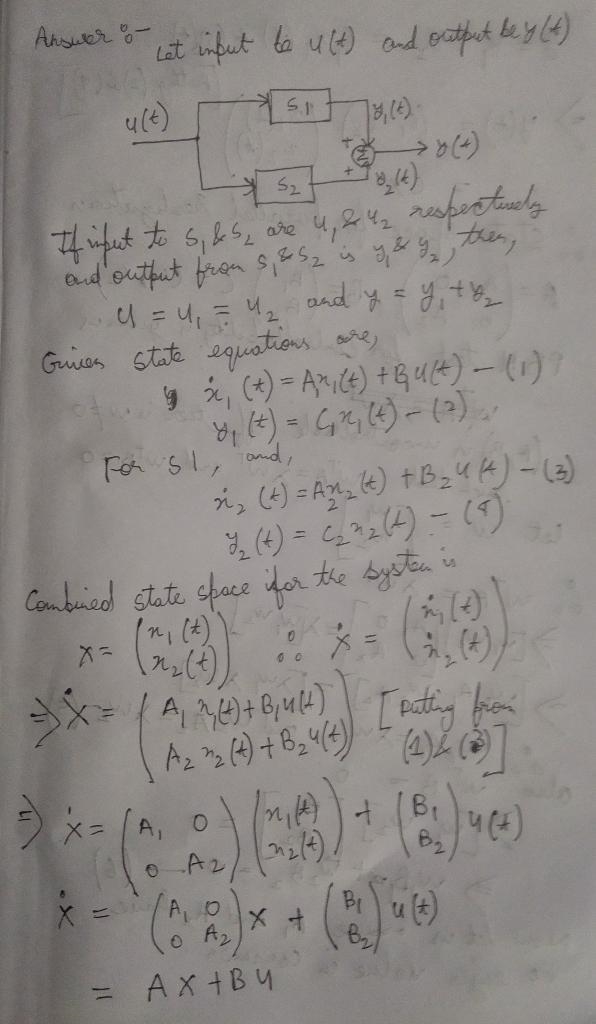 Answer :- Let input be u(t) and output be y(t)
u(t) S1 y₁(t)
+ Σ y(t)
+
S2 y₂(t)
If input to S₁ & S₂ are u₁ & u₂ respectively
and output from S₁ & S₂ is y₁ & y₂, then,
u = u₁ = u₂ and y = y₁ + y₂
Given state equations are,
ẋ₁(t) = A₁x₁(t) + B₁u(t) - (1)
y₁(t) = C₁x₁(t) - (2)
For S1, and,
ẋ₂(t) = A₂x₂(t) + B₂u(t) - (3)
y₂(t) = C₂x₂(t) - (4)
Combined state space for the system is
X = (x₁(t) x₂(t)) ∴ Ẋ = (ẋ₁(t) ẋ₂(t))
⇒ Ẋ = (A₁x₁(t) + B₁u(t) A₂x₂(t) + B₂u(t)) [Putting from (1) & (3)]
⇒ Ẋ = (A₁ 0 0 A₂) (x₁(t) x₂(t)) + (B₁ B₂) u(t)
Ẋ = (A₁ 0 0 A₂) X + (B₁ B₂) u(t)
= AX + BU